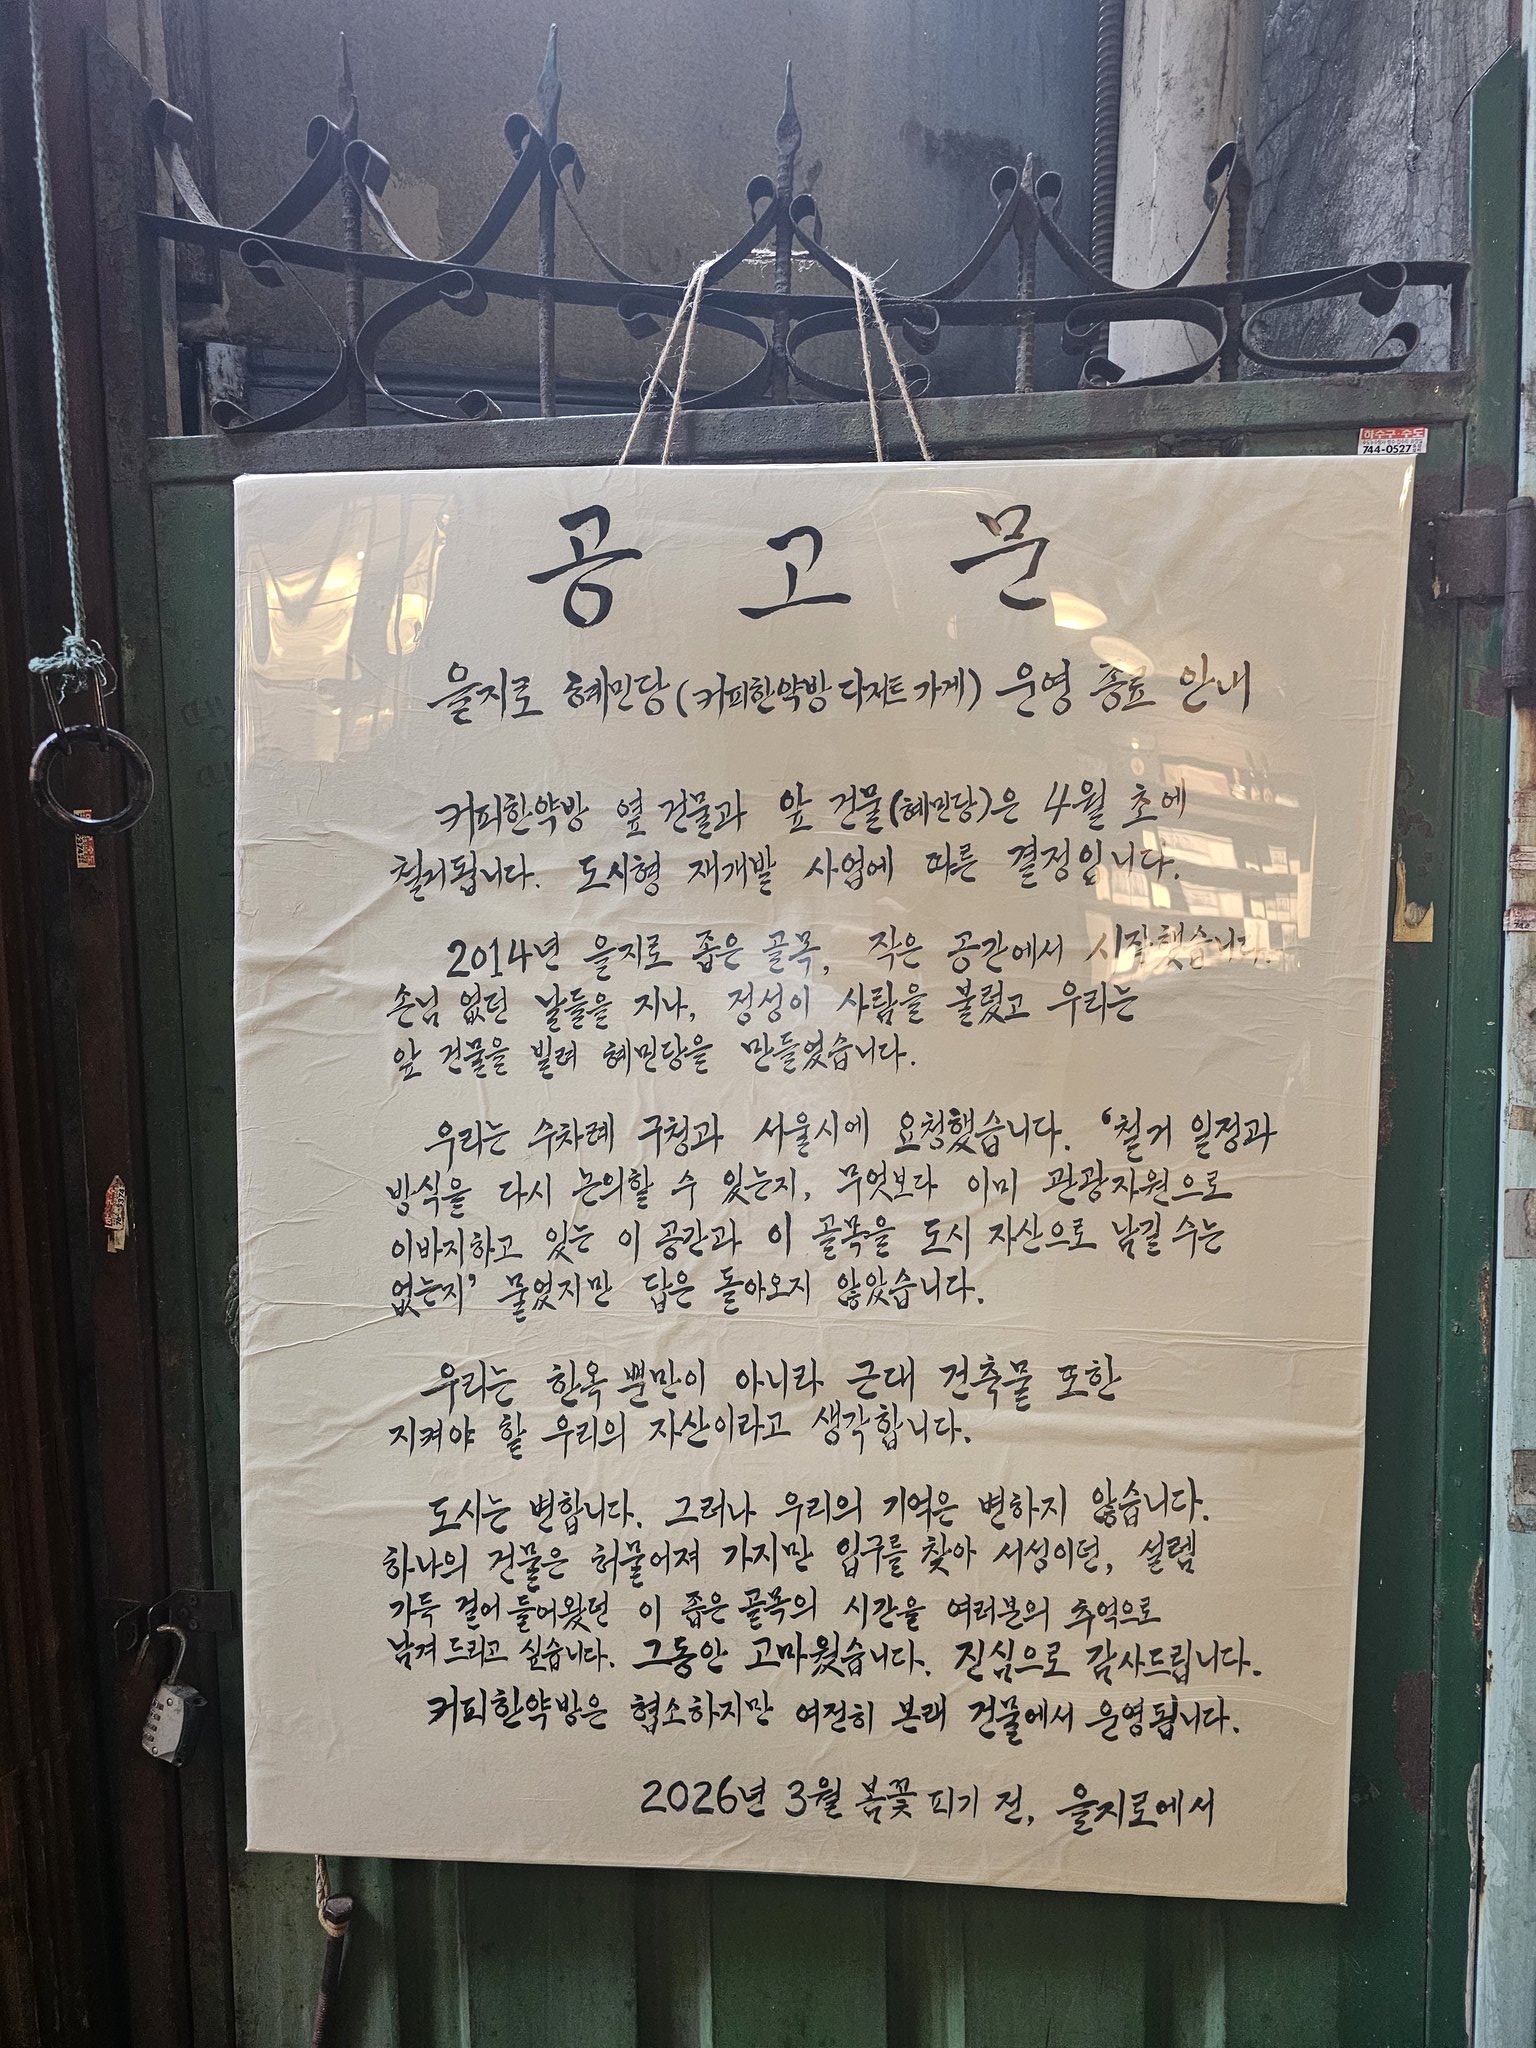 하수구·수도
744-0527
공 고 문
을지로 혜민당(커피한약방 디저트 가게) 운영 종료 안내
커피한약방 옆 건물과 앞 건물(혜민당)은 4월 초에
철거됩니다. 도시형 재개발 사업에 따른 결정입니다.
2014년 을지로 좁은 골목, 작은 공간에서 시작했습니다.
손님 없던 날들을 지나, 정성이 사람을 불렀고 우리는
앞 건물을 빌려 혜민당을 만들었습니다.
우리는 수차례 구청과 서울시에 요청했습니다. ‘철거 일정과
방식을 다시 논의할 수 있는지, 무엇보다 이미 관광자원으로
이바지하고 있는 이 공간과 이 골목을 도시 자산으로 남길 수는
없는지’ 물었지만 답은 돌아오지 않았습니다.
우리는 한옥 뿐만이 아니라 근대 건축물 또한
지켜야 할 우리의 자산이라고 생각합니다.
도시는 변합니다. 그러나 우리의 기억은 변하지 않습니다.
하나의 건물은 허물어져 가지만 입구를 찾아 서성이던, 설렘
가득 걸어 들어왔던 이 좁은 골목의 시간을 여러분의 추억으로
남겨 드리고 싶습니다. 그동안 고마웠습니다. 진심으로 감사드립니다.
커피한약방은 협소하지만 여전히 본래 건물에서 운영됩니다.
2026년 3월 봄꽃 피기 전, 을지로에서